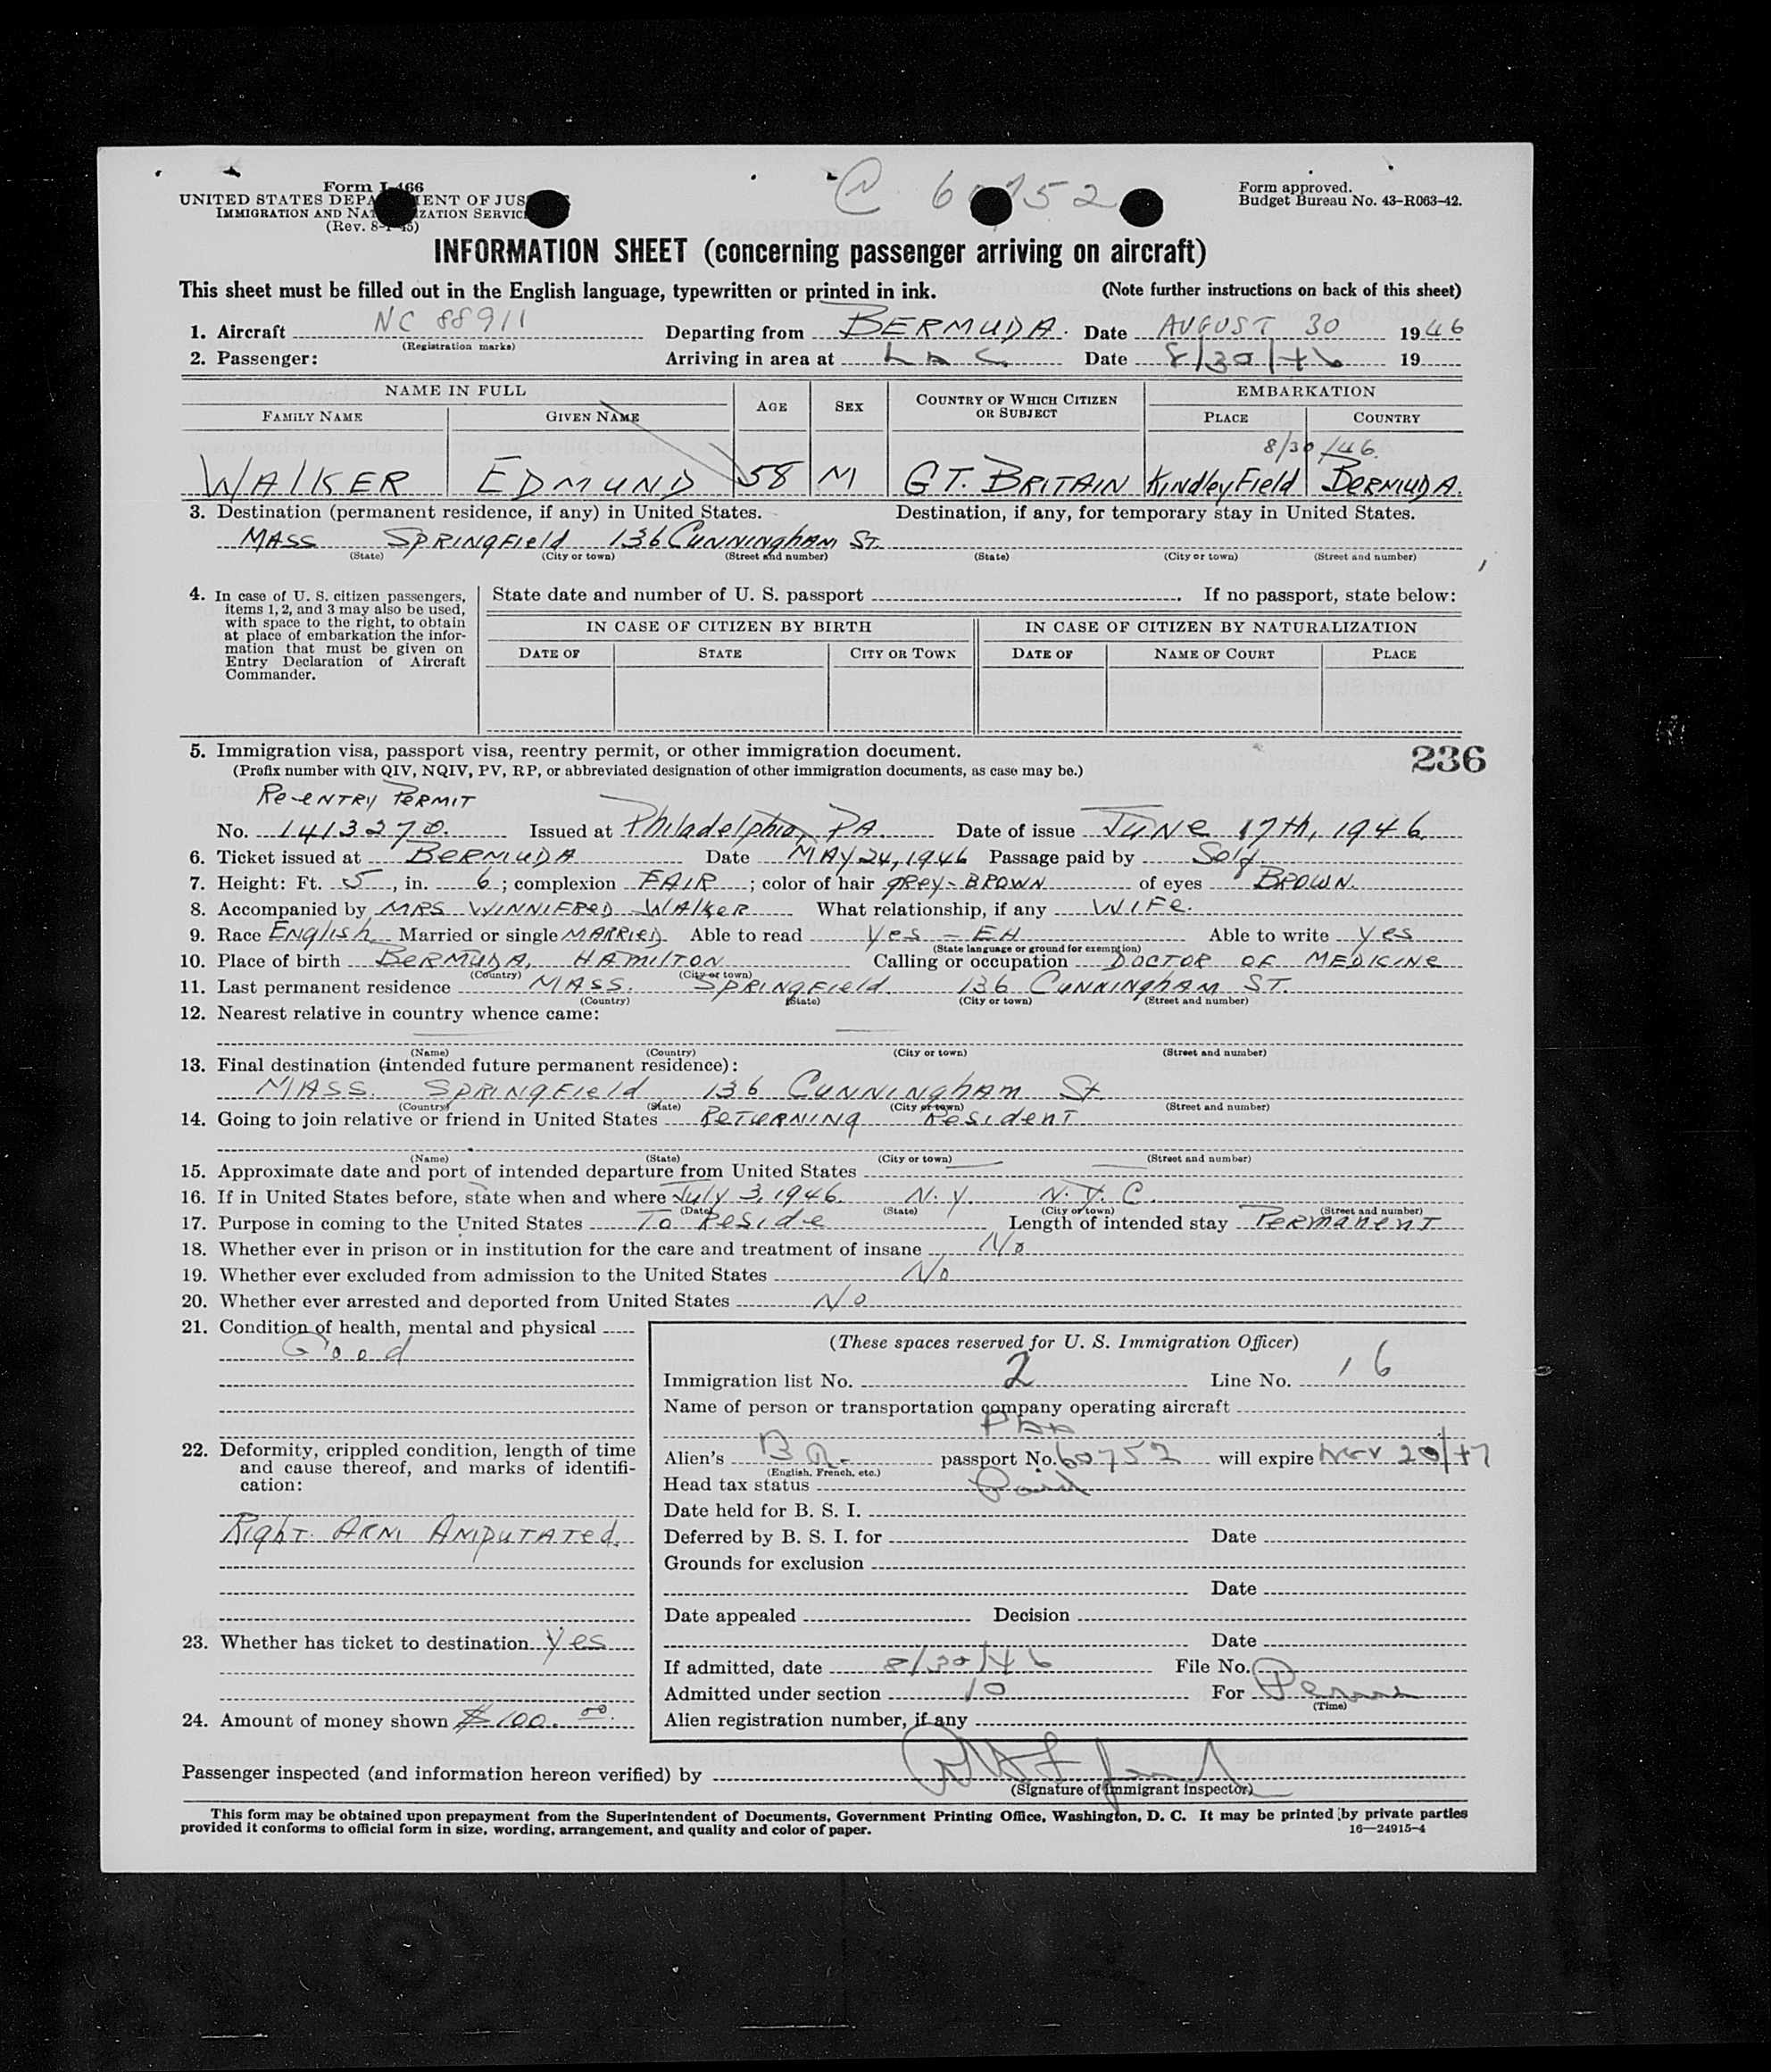 Form I-466
UNITED STATES DEPARTMENT OF JUSTICE
IMMIGRATION AND NATURALIZATION SERVICE
(Rev. 8-1-45)
C 60752
Form approved.
Budget Bureau No. 43-R063-42.
INFORMATION SHEET (concerning passenger arriving on aircraft)
This sheet must be filled out in the English language, typewritten or printed in ink. (Note further instructions on back of this sheet)
1. Aircraft NC 88911 Departing from BERMUDA. Date AUGUST 30 1946
(Registration marks)
2. Passenger: Arriving in area at Date 8/30/46 19
NAME IN FULL AGE SEX COUNTRY OF WHICH CITIZEN OR SUBJECT EMBARKATION
FAMILY NAME GIVEN NAME PLACE COUNTRY
8/30/46.
WALKER EDMUND 58 M GT. BRITAIN Kindley Field BERMUDA.
3. Destination (permanent residence, if any) in United States. Destination, if any, for temporary stay in United States.
MASS SPRINGField 136 CUNNINghAM ST.
(State) (City or town) (Street and number) (State) (City or town) (Street and number)
4. In case of U. S. citizen passengers,
items 1, 2, and 3 may also be used,
with space to the right, to obtain
at place of embarkation the infor-
mation that must be given on
Entry Declaration of Aircraft
Commander.
State date and number of U. S. passport . If no passport, state below:
IN CASE OF CITIZEN BY BIRTH IN CASE OF CITIZEN BY NATURALIZATION
DATE OF STATE CITY OR TOWN DATE OF NAME OF COURT PLACE
5. Immigration visa, passport visa, reentry permit, or other immigration document.
236
(Prefix number with QIV, NQIV, PV, RP, or abbreviated designation of other immigration documents, as case may be.)
Re-ENTRY PERMIT
No. 1413270. Issued at Philadelphia, PA. Date of issue JUNE 17th, 1946.
6. Ticket issued at BERMUDA Date MAY 24, 1946 Passage paid by Self.
7. Height: Ft. 5, in. 6; complexion FAIR; color of hair gREy-BROWN of eyes BROWN.
8. Accompanied by MRS WINNIFRED WALKER What relationship, if any WIFE.
9. Race English Married or single MARRIED. Able to read yes - EH Able to write yes
(State language or ground for exemption)
10. Place of birth BERMUDA, HAMILTON Calling or occupation DOCTOR OF MEDICINE
(Country) (City or town)
11. Last permanent residence MASS. SPRINGField. 136 CUNNINghAM ST.
(Country) (State) (City or town) (Street and number)
12. Nearest relative in country whence came:
(Name) (Country) (City or town) (Street and number)
13. Final destination (intended future permanent residence):
MASS. SPRINGField 136 CUNNINghAM St
(Country) (State) (City or town) (Street and number)
14. Going to join relative or friend in United States RETURNING Resident
(Name) (State) (City or town) (Street and number)
15. Approximate date and port of intended departure from United States
16. If in United States before, state when and where July 3, 1946. N. Y. N. Y. C.
(Date) (State) (City or town) (Street and number)
17. Purpose in coming to the United States To Reside Length of intended stay PERMANENT
18. Whether ever in prison or in institution for the care and treatment of insane No
19. Whether ever excluded from admission to the United States No
20. Whether ever arrested and deported from United States No
21. Condition of health, mental and physical
Good
22. Deformity, crippled condition, length of time
and cause thereof, and marks of identifi-
cation:
Right ARM AMPUTATed.
23. Whether has ticket to destination Yes
24. Amount of money shown $100.00.
(These spaces reserved for U. S. Immigration Officer)
Immigration list No. 2 Line No. 16
Name of person or transportation company operating aircraft
PAA
Alien's BR. passport No. 60752 will expire Nov 20/47
(English, French, etc.)
Head tax status Paid
Date held for B. S. I.
Deferred by B. S. I. for Date
Grounds for exclusion
Date
Date appealed Decision
Date
If admitted, date 8/30/46 File No.
Admitted under section 10 For Perm
(Time)
Alien registration number, if any
Passenger inspected (and information hereon verified) by
(Signature of immigrant inspector)
This form may be obtained upon prepayment from the Superintendent of Documents, Government Printing Office, Washington, D. C. It may be printed by private parties
provided it conforms to official form in size, wording, arrangement, and quality and color of paper. 16—24915-4